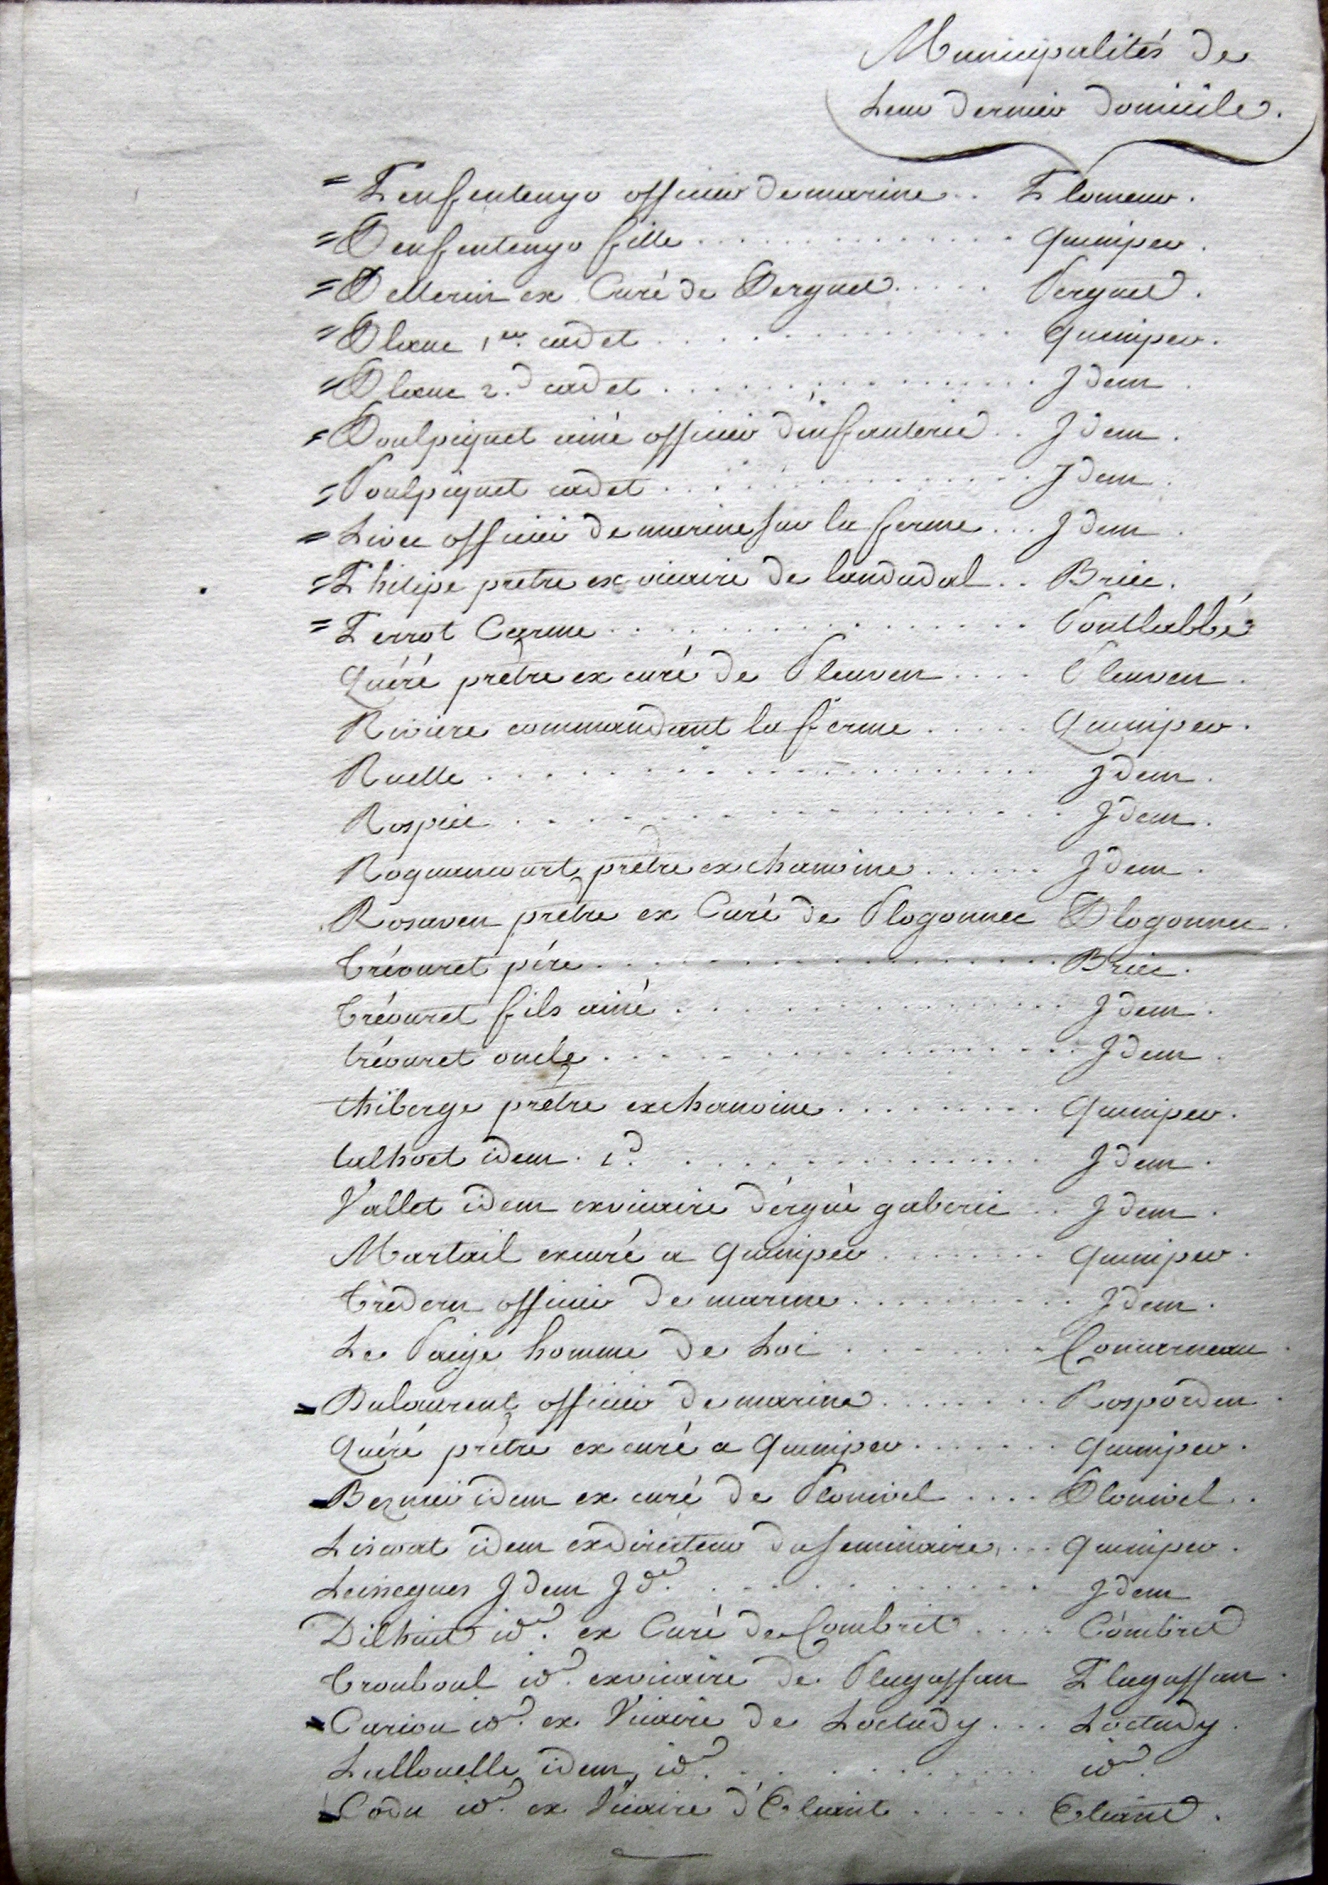 Municipalités de
Leur dernier domicile.
= Penfentenyo officier de marine .. Plomeur.
= Penfentenyo fille ............ quimper.
= Pellerin ex Curé de Perguet ..... Perguet.
= Plœuc 1er cadet ............ quimper.
= Plœuc 2.d cadet ............ Jdem.
= Poulpiquet ainé officier d'infanterie .. Jdem.
= Poulpiquet cadet ............ Jdem.
= officier de marine sur la ferme ... Jdem.
= Philipe prêtre ex vicaire de landudal .. Briec.
= Perrot Carme ............ Pontlabbé
Quéré prêtre ex curé de Pleuven .... Pleuven.
Riviere commandant la ferme ..... Quimper.
Ruelle ............ Jdem.
Rospiec ............ Jdem.
Roquancourt prêtre ex chanoine ...... Jdem.
Rosaven prêtre ex Curé de Plogonnec Plogonnec.
Trévaret pére ............ Briec.
Trévaret fils ainé ............ Jdem.
trévaret oncle ............ Jdem.
thiberge prêtre exchanoine ......... quimper.
talhoet idem. id. ............ Jdem.
Vallet idem exvicaire d'érgué gaberic .. Jdem.
Martail excuré a quimper ........ quimper.
Trédern officier de marine .......... Jdem.
Le Paige homme de Loi ........ Concarneau.
= Dulaurent officier de marine ........ Rosporden.
Quéré prêtre ex curé a quimper ....... quimper.
= Beznier idem ex curé de Plonivel .... Plonivel..
Liscoat idem exdirécteur du seminaire, ... quimper.
Leissegues Jdem Jde. ............ Jdem
Dilhuit idem. ex Curé de Combrit .... Combrit
Trouboul idem. exvicaire de Plugaffan Plugaffan.
= Cariou idem. ex Vicaire de Loctudy ... Loctudy.
Lallouelle idem, idem. ............ idem.
= Codu idem. ex Vicaire d'Eliant ..... Eliant.